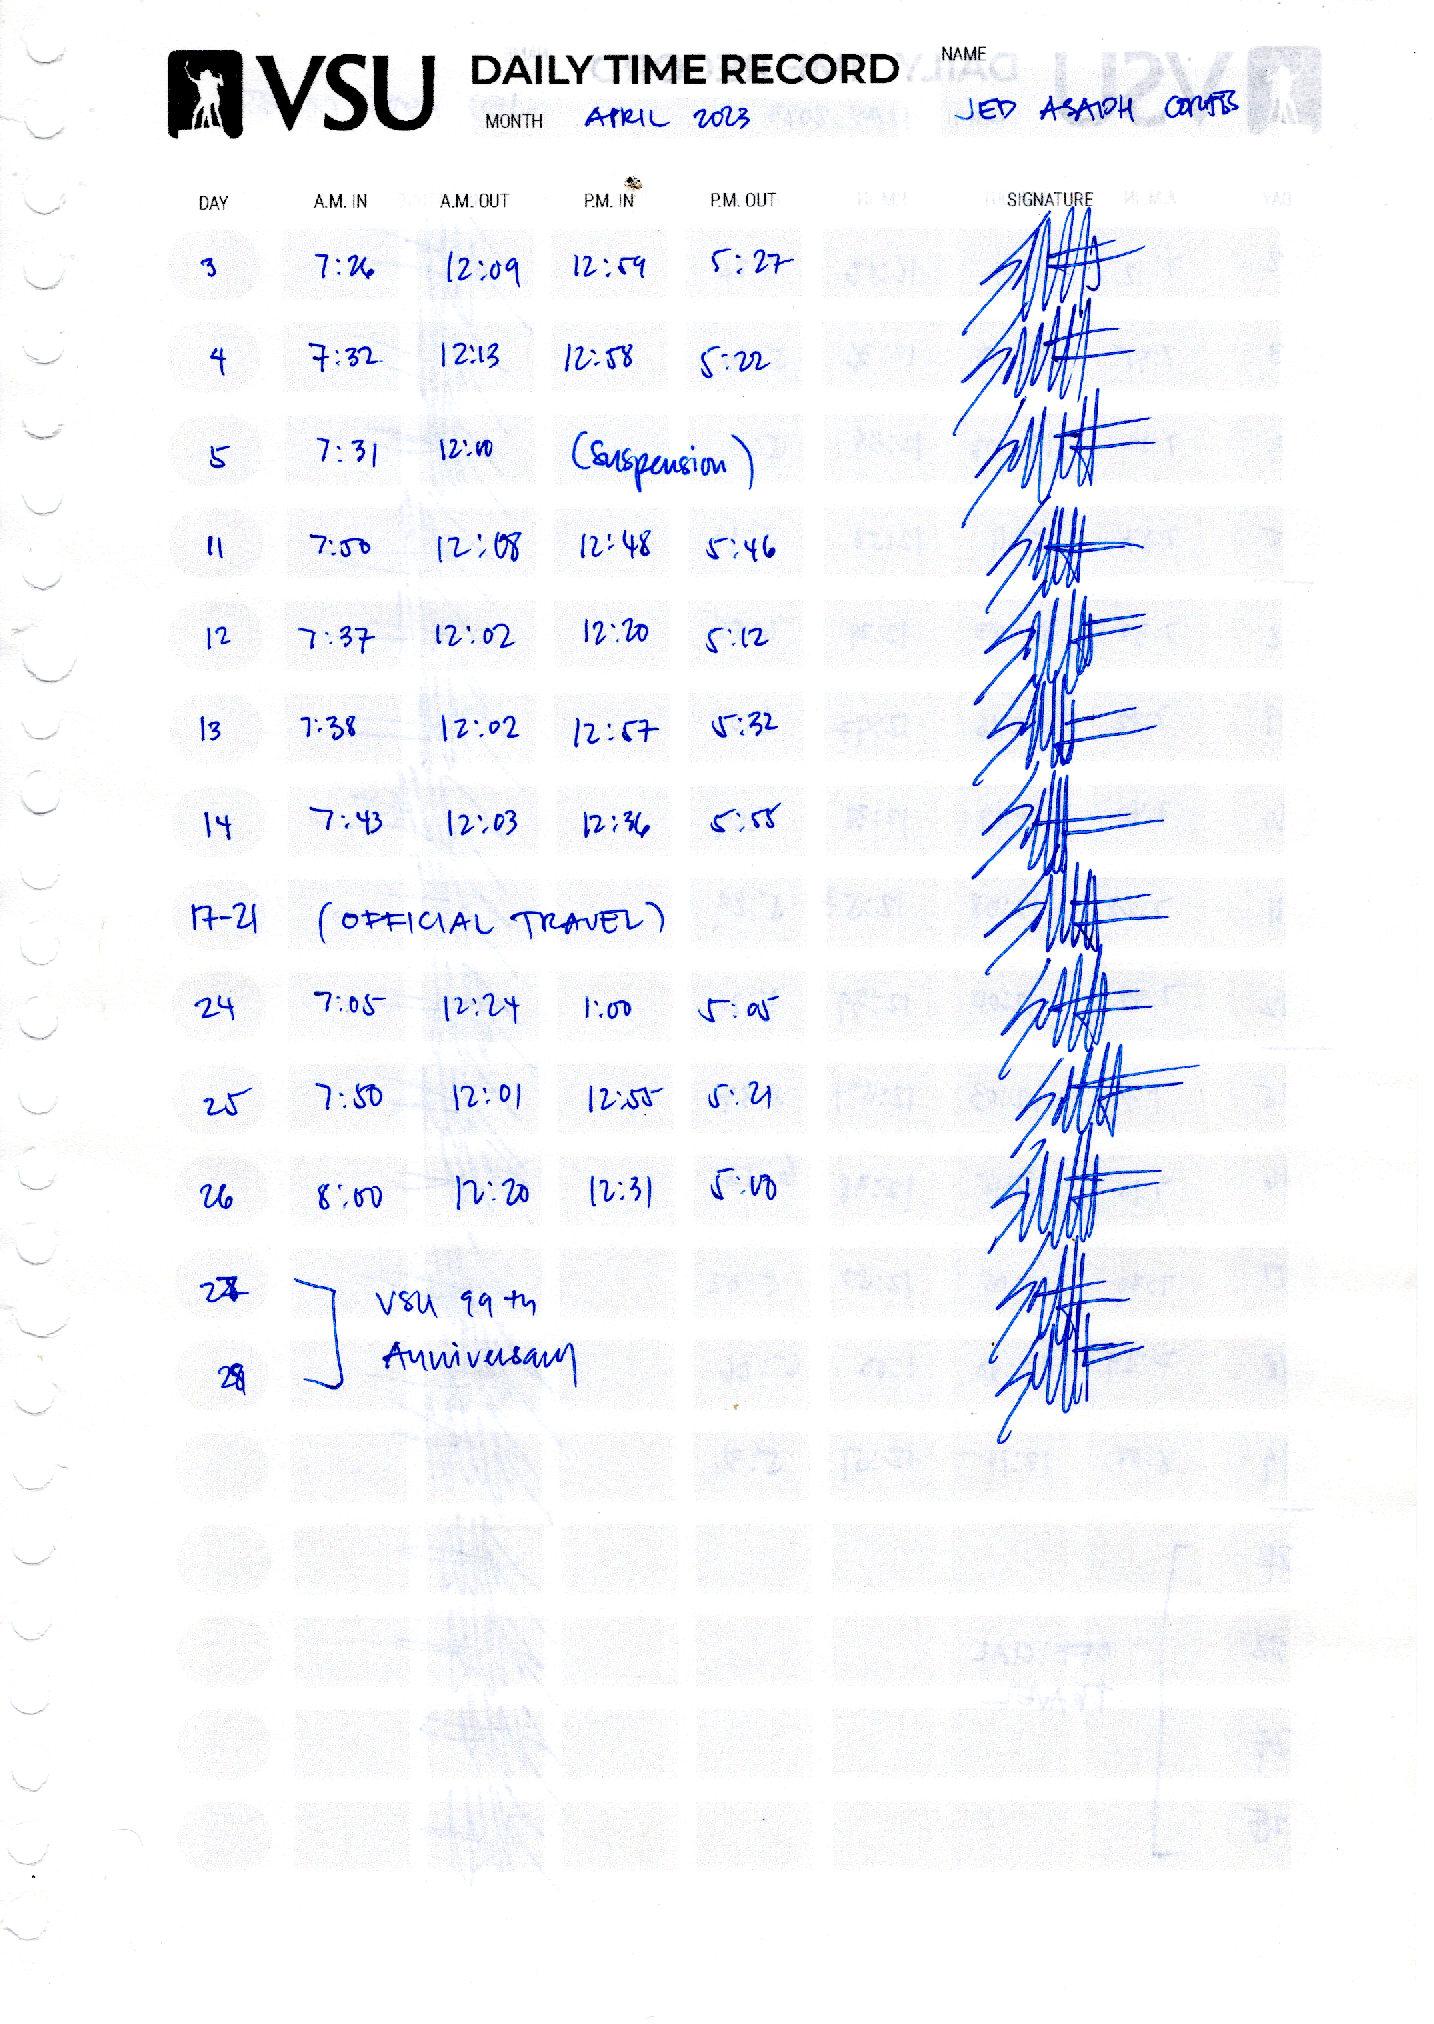 VSU DAILY TIME RECORD NAME
MONTH APRIL 2023 JED ASAPH CORTES
DAY A.M. IN A.M. OUT P.M. IN P.M. OUT SIGNATURE
3 7:26 12:09 12:59 5:27
4 7:32 12:13 12:58 5:22
5 7:31 12:00 (Suspension)
11 7:50 12:08 12:48 5:46
12 7:37 12:02 12:20 5:12
13 7:38 12:02 12:57 5:32
14 7:43 12:03 12:36 5:55
17-21 (OFFICIAL TRAVEL)
24 7:05 12:24 1:00 5:05
25 7:50 12:01 12:55 5:21
26 8:00 12:20 12:31 5:10
27 VSU 99th
Anniversary
28